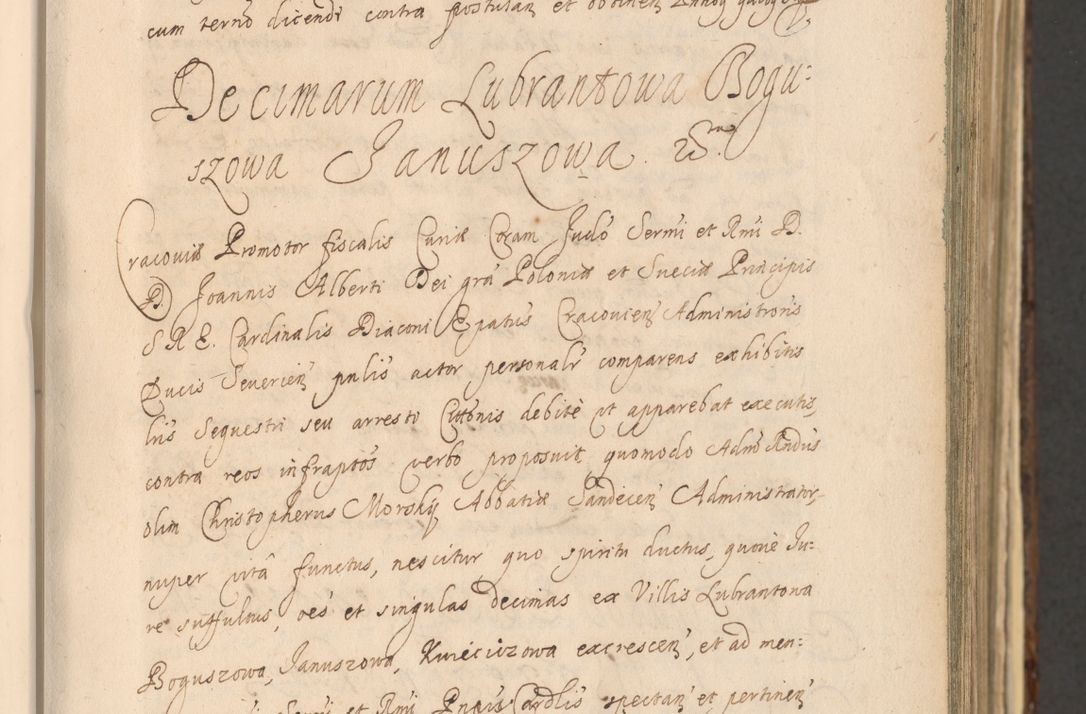 cum termō dicendi contra postulañ et obtineñ
Decimarum Lubrantowa Bogu:
szowa Januszowa.
Cracoviæ Promotor fiscalis Curiæ Coram Judō Sermi et Rmi D.
D. Joannis Alberti Dei grã Poloniæ et Sueciæ Principis
S R E. Cardinalis Diaconi Epatus Cracovieñ Administroris
Ducis Severieñ pnlis actor personalr comparens exhibitis
lris sequestri seu arresti Cittōnis debitè ut apparebat executis,
contra reos infraptōs verbo proposuit quomodo Admō Rndus
olim Christopherus Morskÿ Abbatiæ Sandeceñ Administrator,
nuper vitâ functus, nescitur quo spiritu ductus, quovè Ju:
re suffultus, oēs et singulas decimas ex Villis Lubrantowa
Boguszowa, Januszowa, Kwieciszowa excresceñ, et ad men:
Sermi et Rmi Pnpis Cardlis spectañ et pertineñ